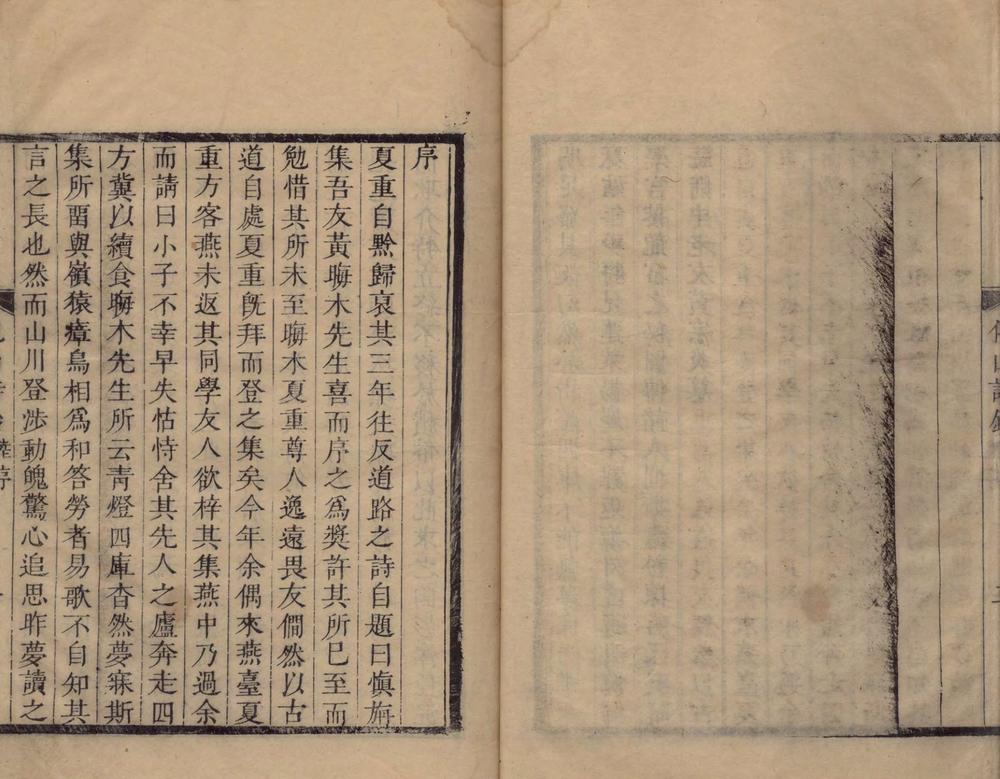 序
夏重自黔歸裒其三年往反道路之詩自題曰愼旃
集吾友黃晦木先生喜而序之爲奬許其所已至而
勉惜其所未至晦木夏重尊人逸遠畏友僩然以古
道自處夏重旣拜而登之集矣今年余偶來燕臺夏
重方客燕未返其同學友人欲梓其集燕中乃過余
而請曰小子不幸早失怙恃舍其先人之廬奔走四
方冀以續食晦木先生所云靑燈四庫杳然夢寐斯
集所畱與嶺猿瘴鳥相爲和答勞者易歌不自知其
言之長也然而山川登涉動魄驚心追思昨夢讀之